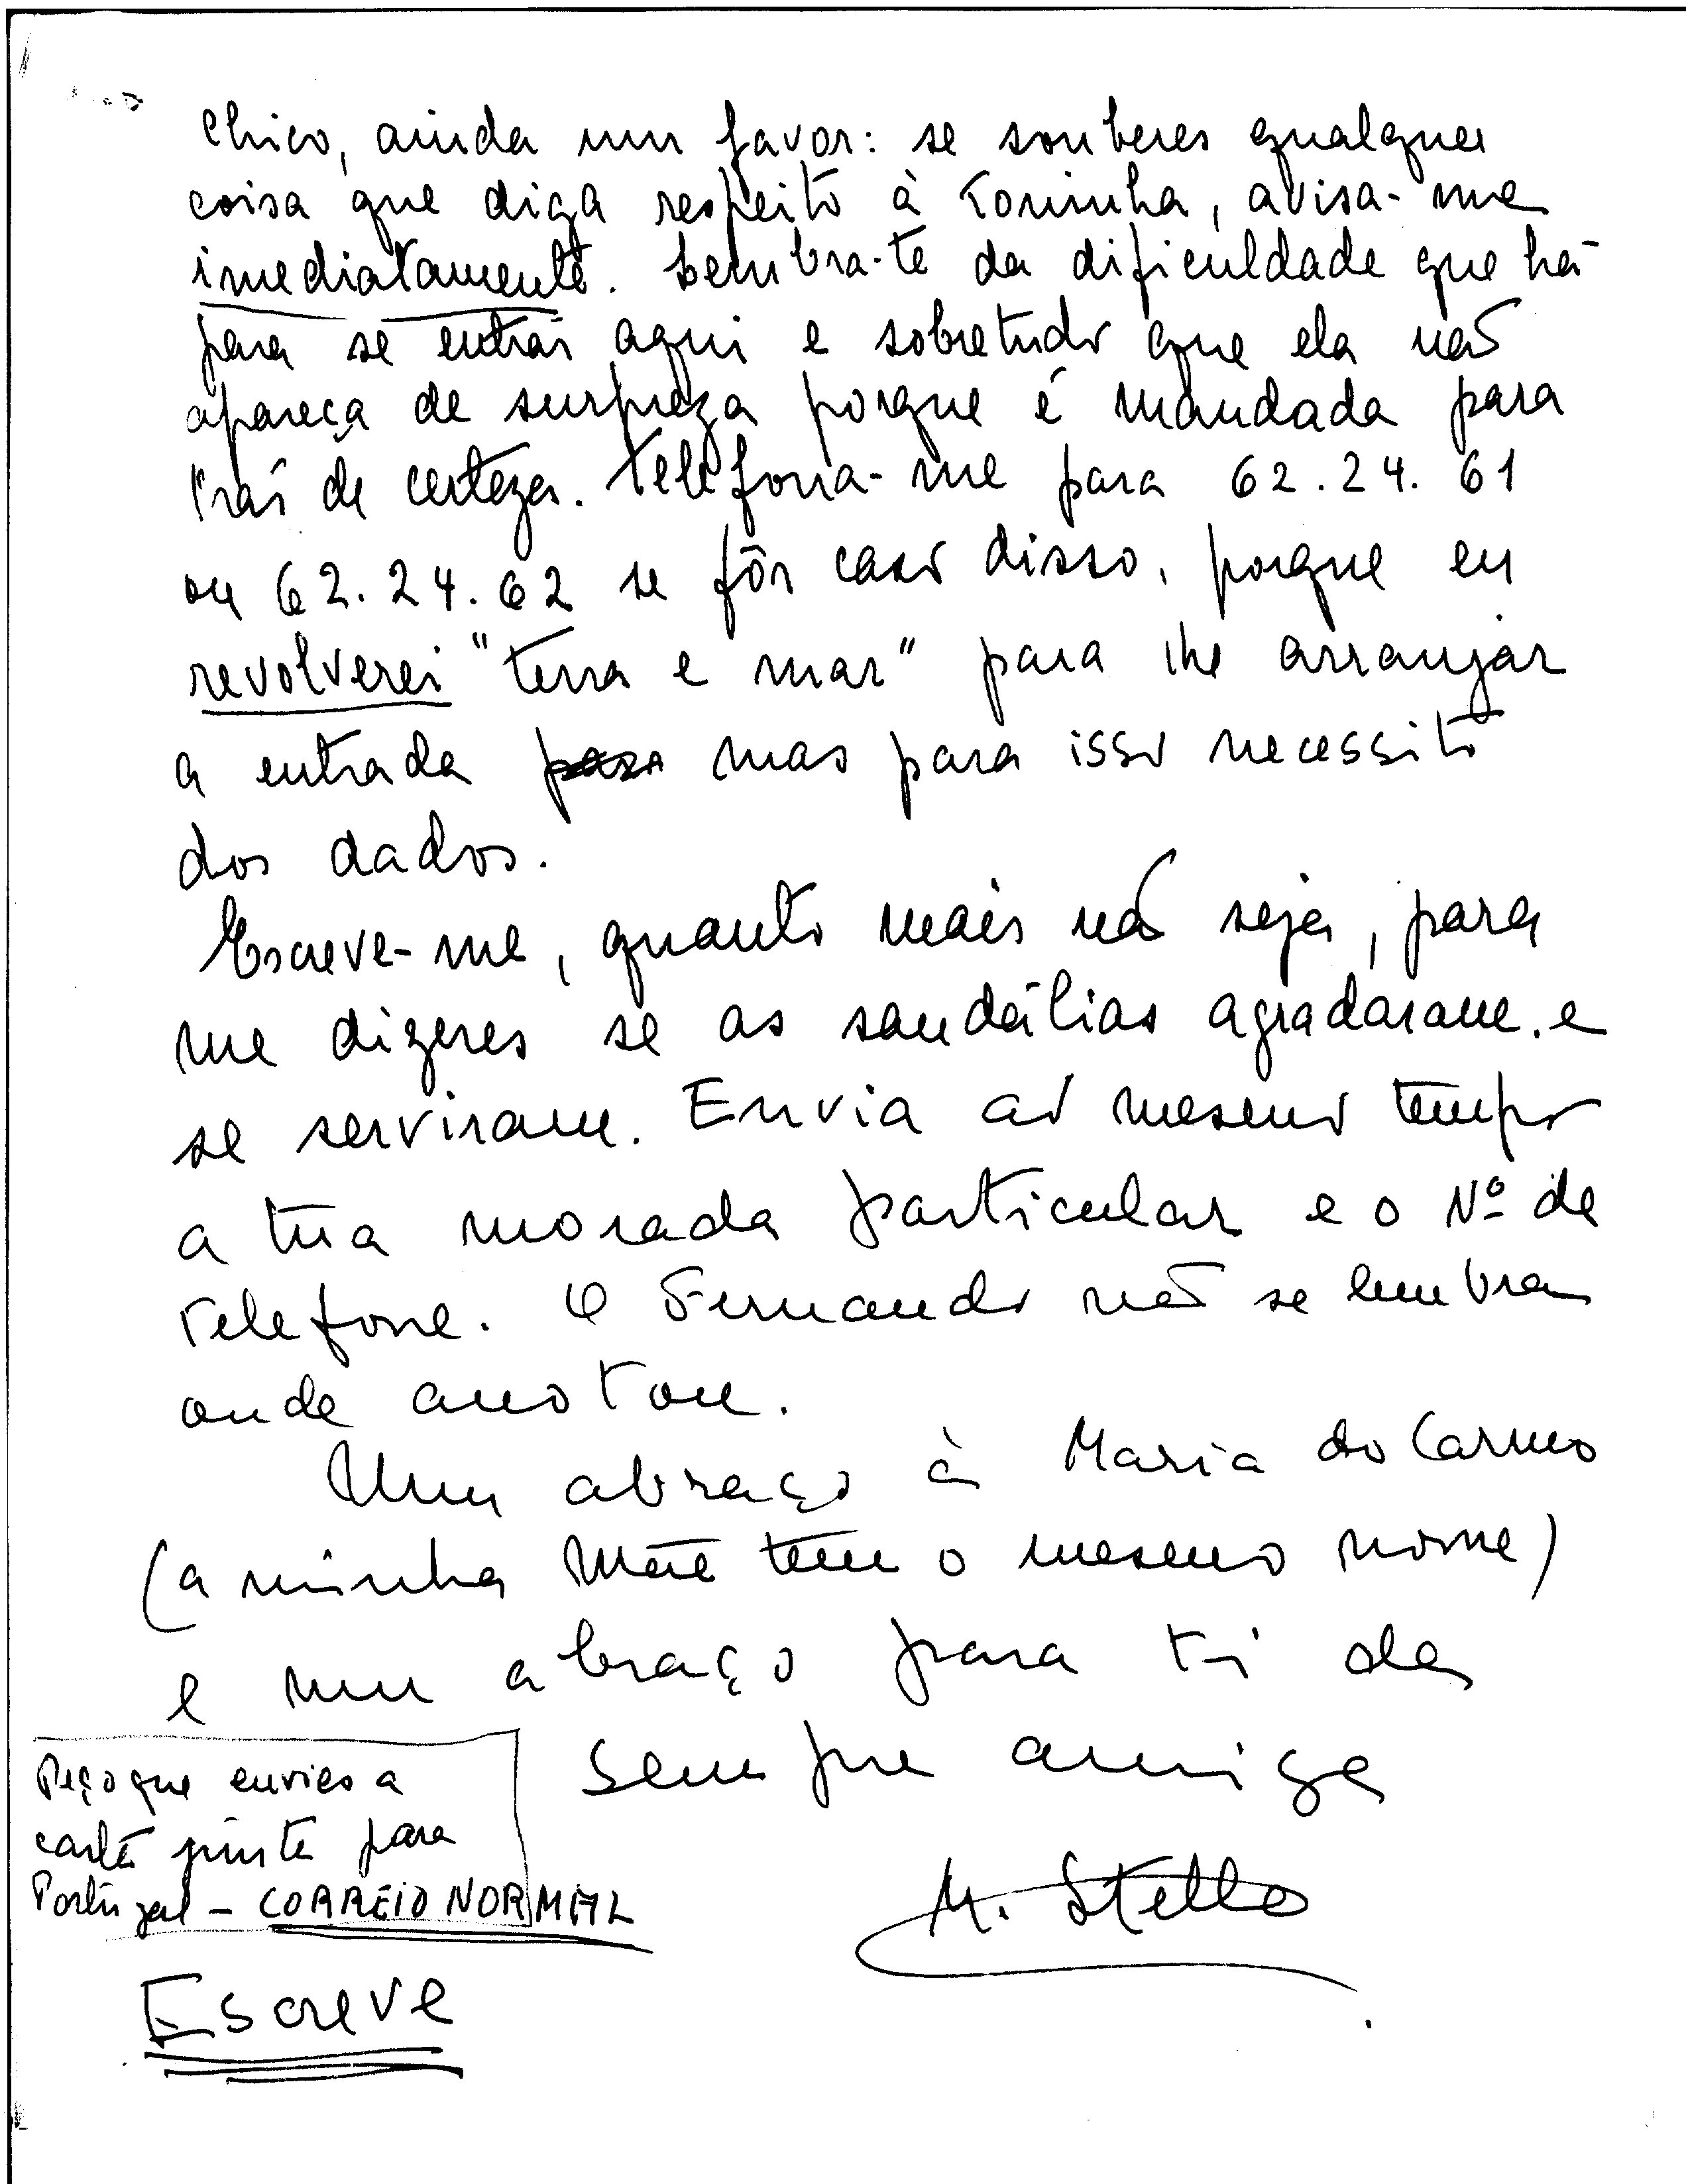 Chico, ainda um favor: se souberes qualquer
coisa que diga respeito à Toninha, avisa-me
imediatamente. Lembra-te da dificuldade que há
para se entrar aqui e sobretudo que ela não
apareça de surpreza porque é mandada para
trás de certeza. Telefona-me para 62.24.61
ou 62.24.62 se fôr caso disso, porque eu
revolverei "terra e mar" para lhe arranjar
a entrada para mas para isso necessito
dos dados.
Escreve-me, quanto mais não seja, para
me dizeres se as sandálias agradaram e
se serviram. Envia ao mesmo tempo
a tua morada particular e o Nº de
Telefone. O Fernando não se lembra
onde anotou.
Um abraço à Maria do Carmo
(a minha Mãe tem o mesmo nome)
e um abraço para ti da
sempre amiga
M. Stella
Peço que envies a
carta junta para
Portugal - CORREIO NORMAL
Escreve